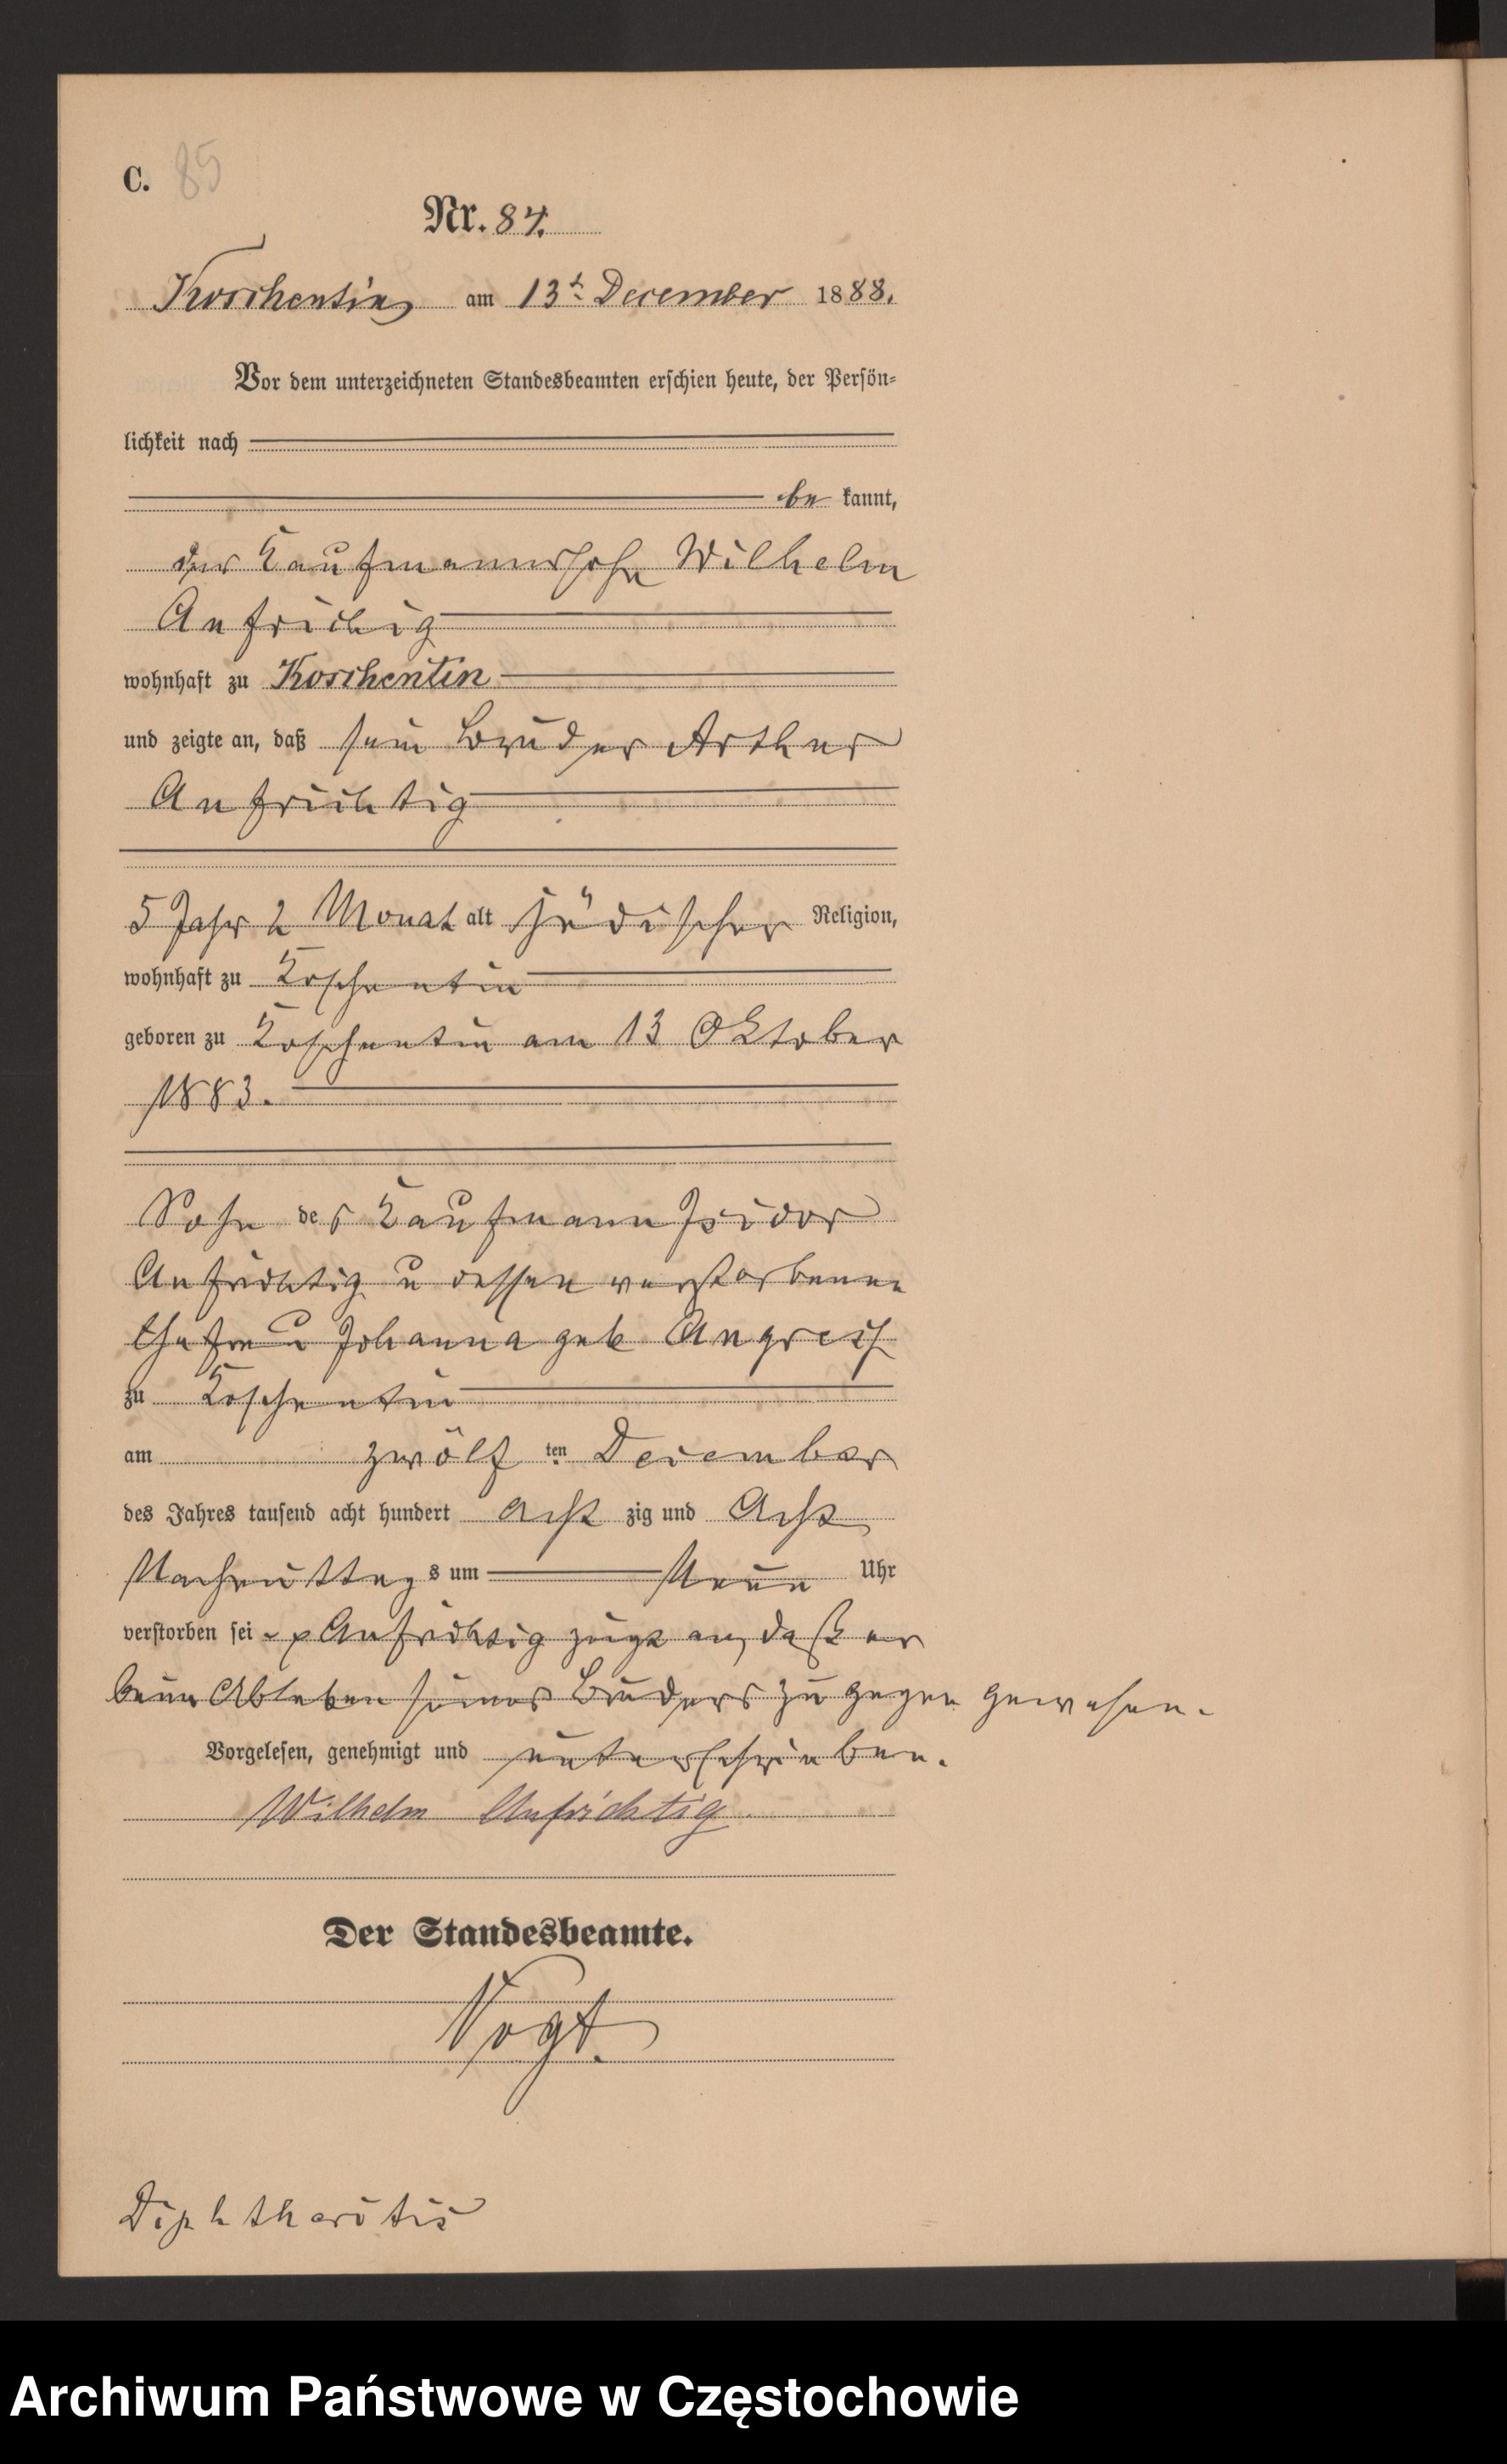 C. 85
Nr. 84.
Koschentin am 13t December 1888.
Vor dem unterzeichneten Standesbeamten erschien heute, der Persön-
lichkeit nach
be kannt,
der Kaufmannssohn Wilhelm
Aufrichig
wohnhaft zu Koschentin
und zeigte an, daß sein Bruder Arthur
Aufrichtig
5 Jahr 2 Monat alt jüdischer Religion,
wohnhaft zu Koschentin
geboren zu Koschentin am 13 Oktober
1883.
Sohn des Kaufmann Isidor
Aufrichtig u dessen verstorbenen
Ehefrau Johanna geb
zu Koschentin
am zwölf ten December
des Jahres tausend acht hundert acht zig und Acht
Nachmittags um Neun Uhr
verstorben sei Aufrichtig zeigt an, daß er
beim Ableben seines Bruders zu gegen gewesen.
Vorgelesen, genehmigt und unterschrieben.
Wilhelm Aufrichtig
Der Standesbeamte.
Vogt.
Diphtheritis
Archiwum Państwowe w Częstochowie